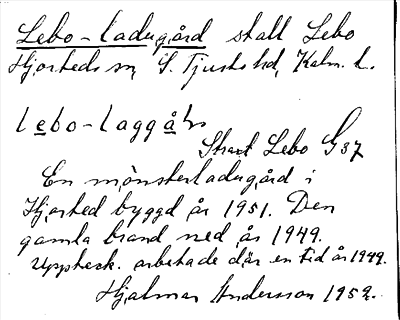 Lebo-ladugård stall Lebo
Hjorteds sn, S. Tjusts hd, Kalm. l.
lebo-laggåln
Strax Lebo G37
En mönsterladugård i
Hjorted byggd år 1951. Den
gamla brand ned år 1949.
Uppteck. arbetade där en tid år 1949.
Hjalmar Andersson 1952.